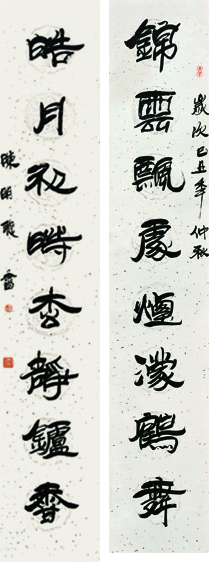 錦雲飄處煙濛鶴舞
歲次己丑年仲秋
皓月初時杳靜鑪香
陳明聚書